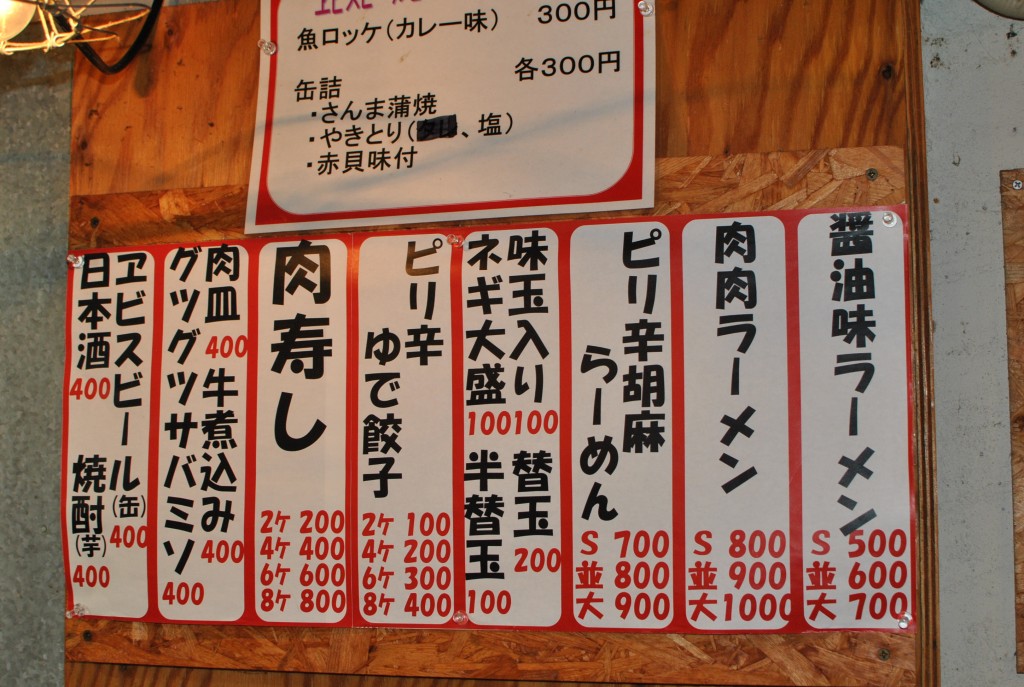 魚ロッケ（カレー味） 300円
各300円
缶詰
・さんま蒲焼
・やきとり（タレ、塩）
・赤貝味付
醤油味ラーメン
S 500
並 600
大 700
肉肉ラーメン
S 800
並 900
大 1000
ピリ辛胡麻
らーめん
S 700
並 800
大 900
味玉入り 100
替玉 200
ネギ大盛 100
半替玉 100
ピリ辛
ゆで餃子
2ケ 100
4ケ 200
6ケ 300
8ケ 400
肉寿し
2ケ 200
4ケ 400
6ケ 600
8ケ 800
肉皿 400
牛煮込み 400
グツグツサバミソ 400
ヱビスビール(缶) 400
日本酒 400
焼酎(芋) 400